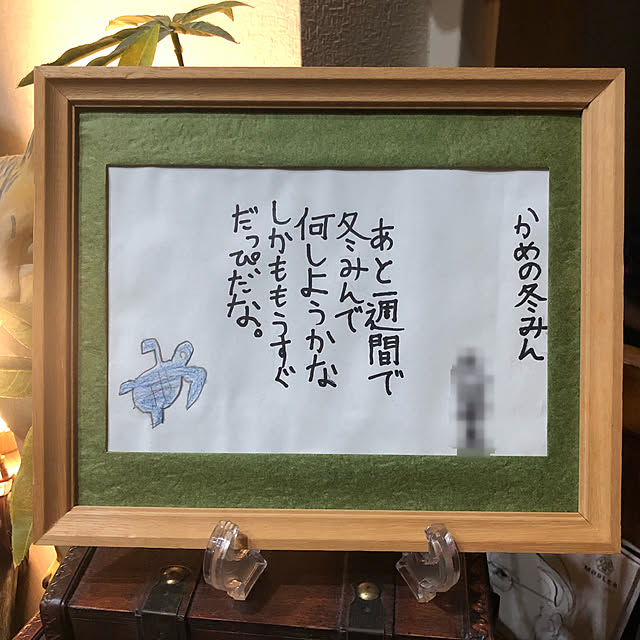 かめの冬みん
あと一週間で
冬みんで
何しようかな
しかももうすぐ
だっぴだな。